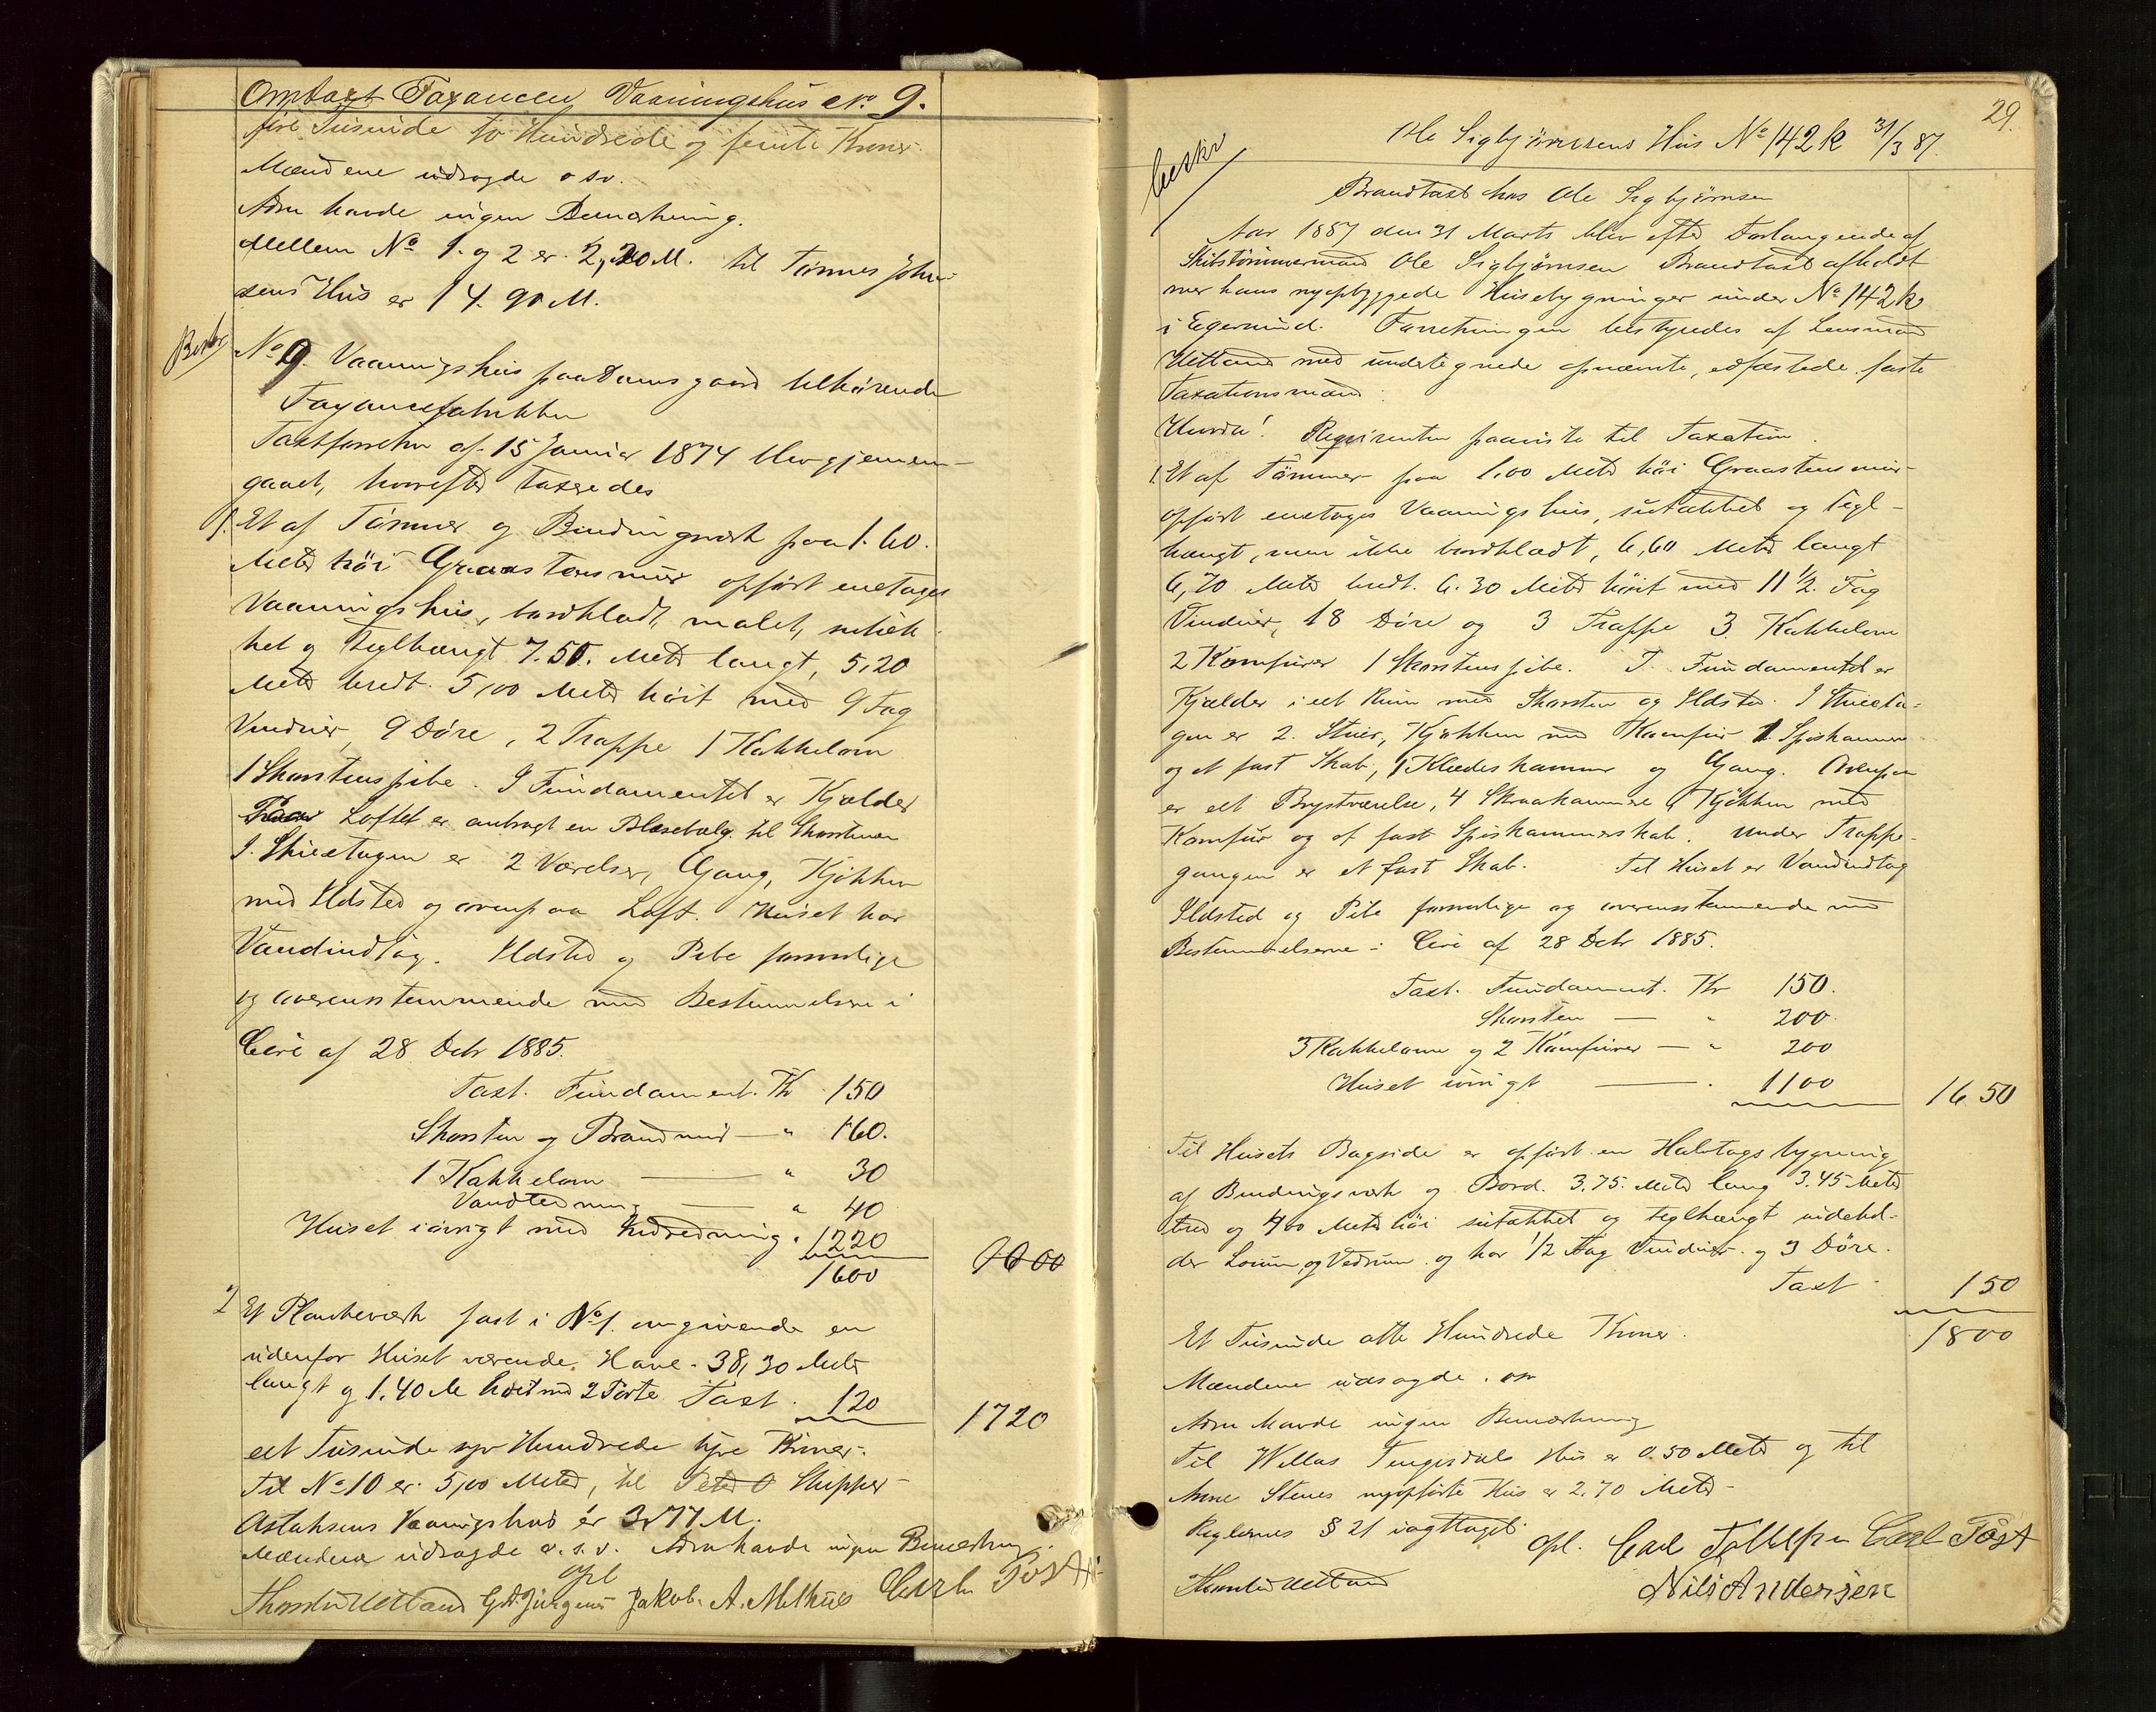 Omtaxt Fayancen Vaaningshus No 9.
fire Tusinde to Hundrede og femti Kroner.
Mændene udsagde o sv.
Adm havde ingen Bemærkning.
Mellem No 1. og 2 er 2,20 M. til Tønnes John-
sens Hus er 14.90 M.
Beskr
No 9. Vaaningshus paa Damsgaard tilhørende
Fayancefabrikken
Taxtforretn af 15 Januar 1874 blev gjennem-
gaaet, hvorefter taxeredes
1. Et af Tømmer og Bindingsværk paa 1.60.
Meter høi Graastensmur opført enetages
Vaaningshus, bordklædt, malet, sutæk-
ket og teglhængt 7.50. Meter langt, 5,20
Meter bredt. 5,00 Meter høit med 9 Fag
Vinduer, 9 Døre, 2 Trappe 1 Kakkelovn
1 Skorstenspibe. I Fundamentet er Kjælder
Paa Loftet er anbragt en Blæsebælg til Skorstenen
I Stuetagen er 2 Værelser, Gang, Kjøkken
med Ildsted og ovenpaa Loft. Huset har
Vandindlæg. Ildsted og Pibe forsvarlige
og overensstemmende med Bestemmelserne i
Circ af 28 Decbr 1885.
Taxt. Fundament. Kr 150
Skorsten og Brandmur — " 160.
1 Kakkelovn — " 30
Vandledning — " 40
Huset iøvrigt med Indredning " 1220
1600 1600
2 Et Plankeværk fast i No 1. omgivende en
udenfor Huset værende Have. 38,30 Meter
langt og 1.40 M høit med 2 Porte Taxt. 120
1720
eet Tusinde syv Hundrede tyve Kroner.
Til No 10 er 5,00 Meter, til Peter O Skipper
Aslaksens Vaaningshus er 3,77 M.
Mændene udsagde o. s. v. Adm havde ingen Bemærkning.
opl
Thorstein Uetland G. A. Jürgens Jakob. A. Melhus Carl Tøst
29.
Ole Sigbjørnsens Hus No 142 k 31/3 87.
beskr
Brandtaxt hos Ole Sigbjørnsen
Aar 1887 den 31 Marts blev efter Forlangende af
Skibstømmermand Ole Sigbjørnsen Brandtaxt afholdt
over hans nyopbyggede Husebygninger under No 142 k
i Egersund. Forretningen bestyredes af Lensmand
Uetland med undertegnede opnævnte, edfæstede faste
Taxationsmænd.
Hvorda! Requirenten paaviste til Taxation.
1. Et af Tømmer paa 1.00 Meter høi Graastensmur
opført enetages Vaaningshus, sutækket og tegl-
hængt, men ikke bordklædt, 6,60 Meter langt
6,70 Meter bredt. 6.30 Meter høit med 11 1/2. Fag
Vinduer, 18 Døre og 3 Trappe 3. Kakkelovn
2 Komfurer 1 Skorstenspibe. I Fundamentet er
Kjælder i eet Rum med Skorsten og Ildsted. I Stueeta-
gen er 2. Stuer, Kjøkken med Komfur 1 Spiskammer
og et fast Skab, 1 Klædeskammer og Gang. Ovenpaa
er eet Brystværelse, 4 Skraakammere, Kjøkken med
Komfur og et fast Spiskammerskab. Under Trappe-
gangen er et fast Skab. Til Huset er Vandindlæg
Ildsted og Pibe forsvarlige og overensstemmende med
Bestemmelserne i Circ af 28 Decbr 1885.
Taxt. Fundament. Kr 150.
Skorsten — " 200.
3 Kakkelovne og 2 Komfurer — " 200
Huset iøvrigt — " 1100
1650
Til Husets Bagside er opført en Halvtagsbygning
af Bindingsværk og Bord. 3.75. Meter lang 3.45 Meter
bred og 4,00 Meter høi sutækket og teglhængt indehol-
der Locum og Vedrum og har 1/2 Fag Vinduer og 3 Døre.
Taxt 150
1800
Et Tusinde otte Hundrede Kroner.
Mændene udsagde. osv
Adm havde ingen Bemærkning
Til Willas Tengesdals Hus er 0.50 Meter og til
Anne Stenes nyopførte Hus er 2.70 Meter
Reglernes § 21 iagttaget. opl. Carl Tollefsen Carl Tøst
Thorstein Uetland Nils Andersen